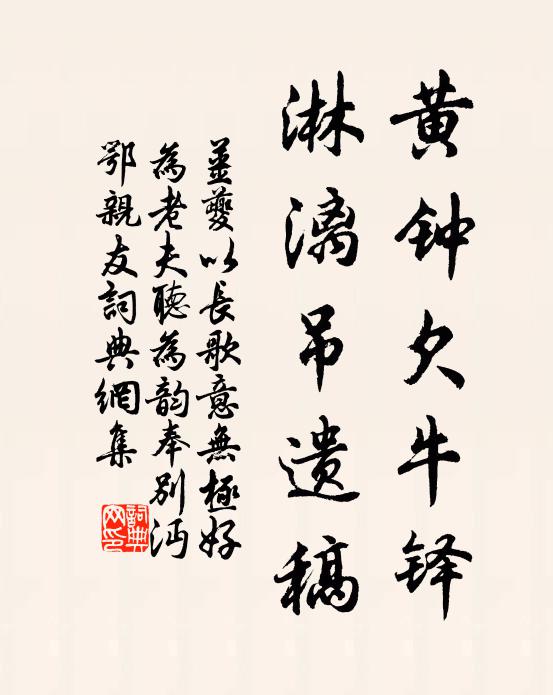 黄钟欠牛铎
淋漓吊遗稿
薑夔以長歌意無極好
為老夫聽為韵奉別沔
鄂親友詞典網集
詞典网印